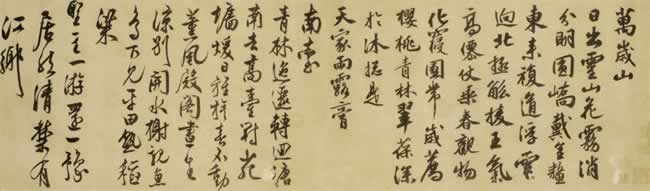 萬歲山
日出靈山花霧消
分明圓嶠戴金鰲
東來複道浮雲
迥北極觚稜王氣
高僊仗乘春觀物
化寢園常歲薦
櫻桃青林翠葆深
於沐揔是
天家雨露膏
南臺
青林迤邐轉迴塘
南去高臺對苑
墻暖日旌旗春不動
薰風殿閣晝生
涼別開水榭親魚
鳥下見平田熟稻
梁
聖主一游還一豫
居然清禁有
江鄉